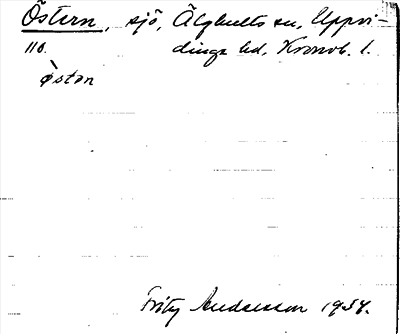 Östern, sjö, Älghults sn, Uppvi-
110. dinge hd, Kronob. l.
östan
Fritz Andersson 1934.